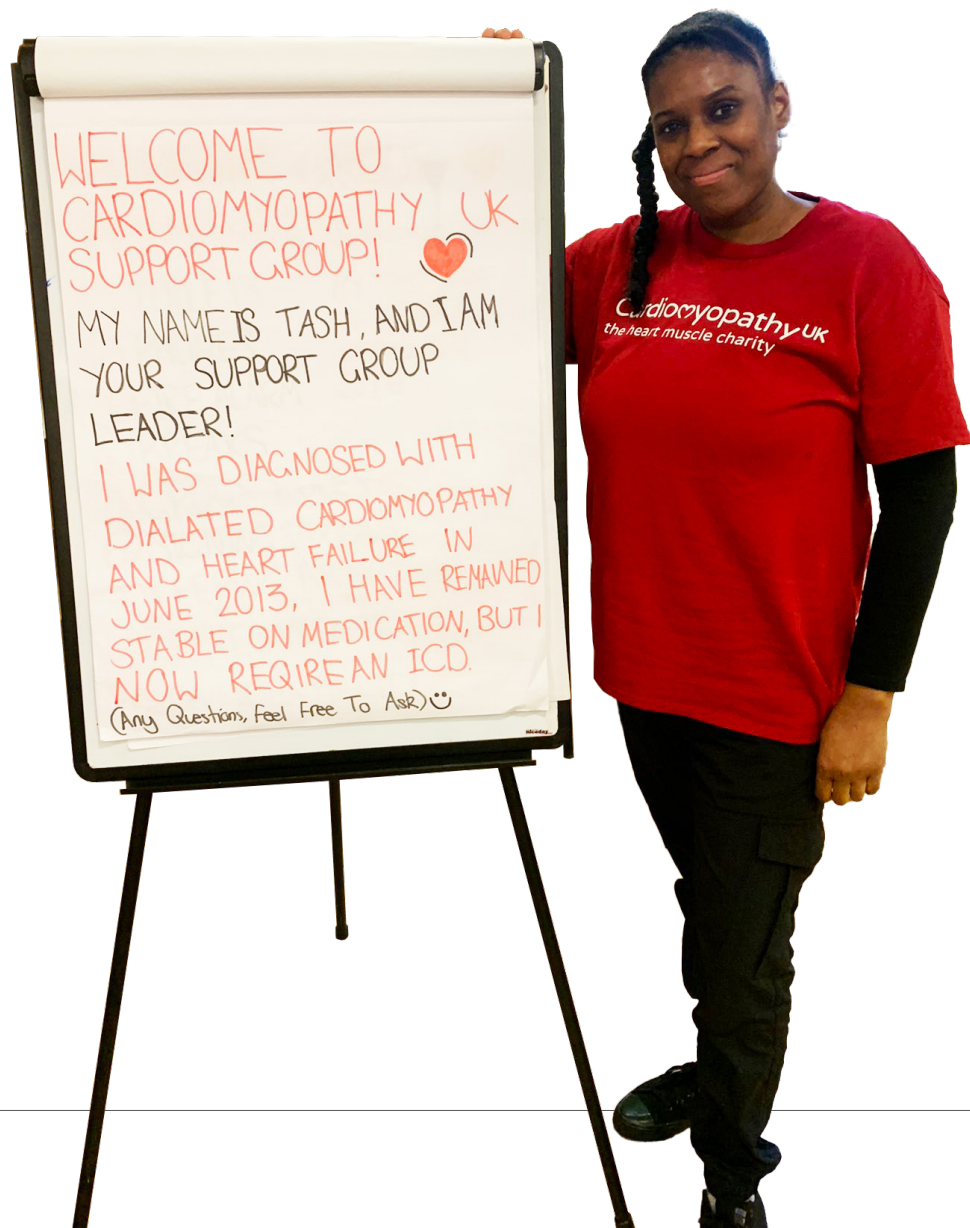 WELCOME TO
CARDIOMYOPATHY UK
SUPPORT GROUP!
MY NAME IS TASH, AND I AM
YOUR SUPPORT GROUP
LEADER!
I WAS DIAGNOSED WITH
DIALATED CARDIOMYOPATHY
AND HEART FAILURE IN
JUNE 2013, I HAVE REMAINED
STABLE ON MEDICATION, BUT I
NOW REQIRE AN ICD.
(Any Questions, Feel Free To Ask)
Cardiomyopathy UK
the heart muscle charity